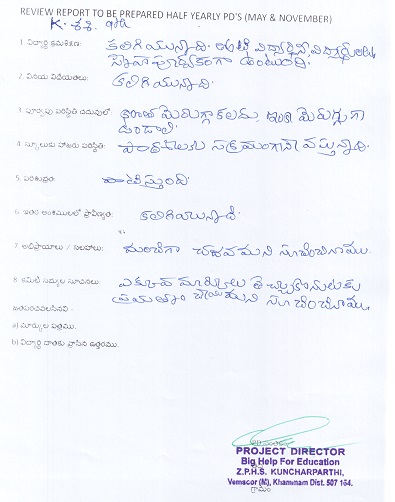 REVIEW REPORT TO BE PREPARED HALF YEARLY PD'S (MAY & NOVEMBER)
K. శశి. 9th
1. విద్యార్థి క్రమశిక్షణ: కలిగియున్నాది.
స్నేహపూర్వకంగా ఉంటుంది.
2. వినయ విధేయతలు: కలిగియున్నాది.
3. పూర్వపు పరిస్థితి చదువులో: ఇంకా మెరుగ్గా
ఉండాలి.
4. స్కూలుకు హాజరు పరిస్థితి: పాఠశాలకు సక్రమంగానే వస్తున్నాది.
5. పరిశుభ్రత: పాటిస్తుంది.
6. ఇతర అంశములలో ప్రావీణ్యత: కలిగియున్నాది.
7. అభిప్రాయాలు / సలహాలు: మంచిగా చదవమని సూచించినాము.
8. కమిటీ సభ్యుల సూచనలు: ఎక్కువ మార్కులు తెచ్చుకొనుటకు
ప్రయత్నం చేయమని సూచించినాము.
జతపరచవలసినవి -
a) మార్కుల పత్రము.
b) విద్యార్థి దాతకు వ్రాసిన ఉత్తరము.
PROJECT DIRECTOR
Big Help For Education
Z.P.H.S. KUNCHARPARTHI,
Vemsoor (M), Khammam Dist. 507 164.
గ్రామం